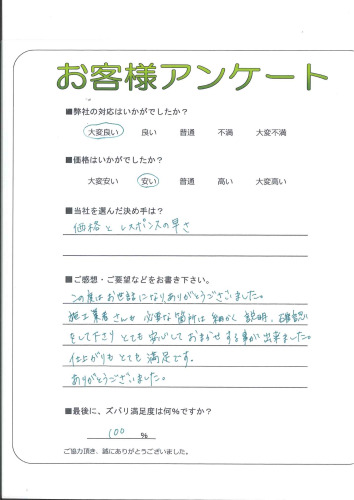 お客様アンケート
■弊社の対応はいかがでしたか？
大変良い 良い 普通 不満 大変不満
■価格はいかがでしたか？
大変安い 安い 普通 高い 大変高い
■当社を選んだ決め手は？
価格とレスポンスの早さ
■ご感想・ご要望などをお書き下さい。
この度はお世話になりありがとうございました。
施工業者さんも必要な箇所は細かく説明、確認
をして下さりとても安心しておまかせする事が出来ました。
仕上がりもとても満足です。
ありがとうございました。
■最後に、ズバリ満足度は何％ですか？
100 %
ご協力頂き、誠にありがとうございました。